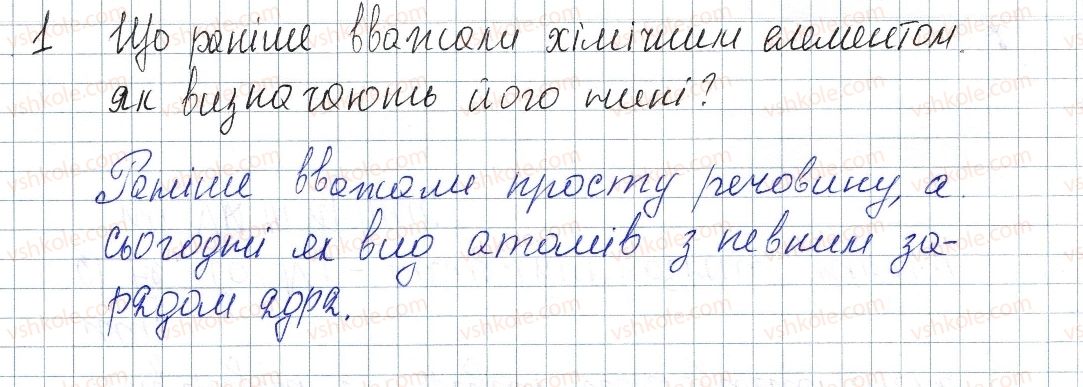 1 Що раніше вважали хімічним елементом.
як визначають його нині?
Раніше вважали просту речовину, а
сьогодні як вид атомів з певним за-
рядом ядра.